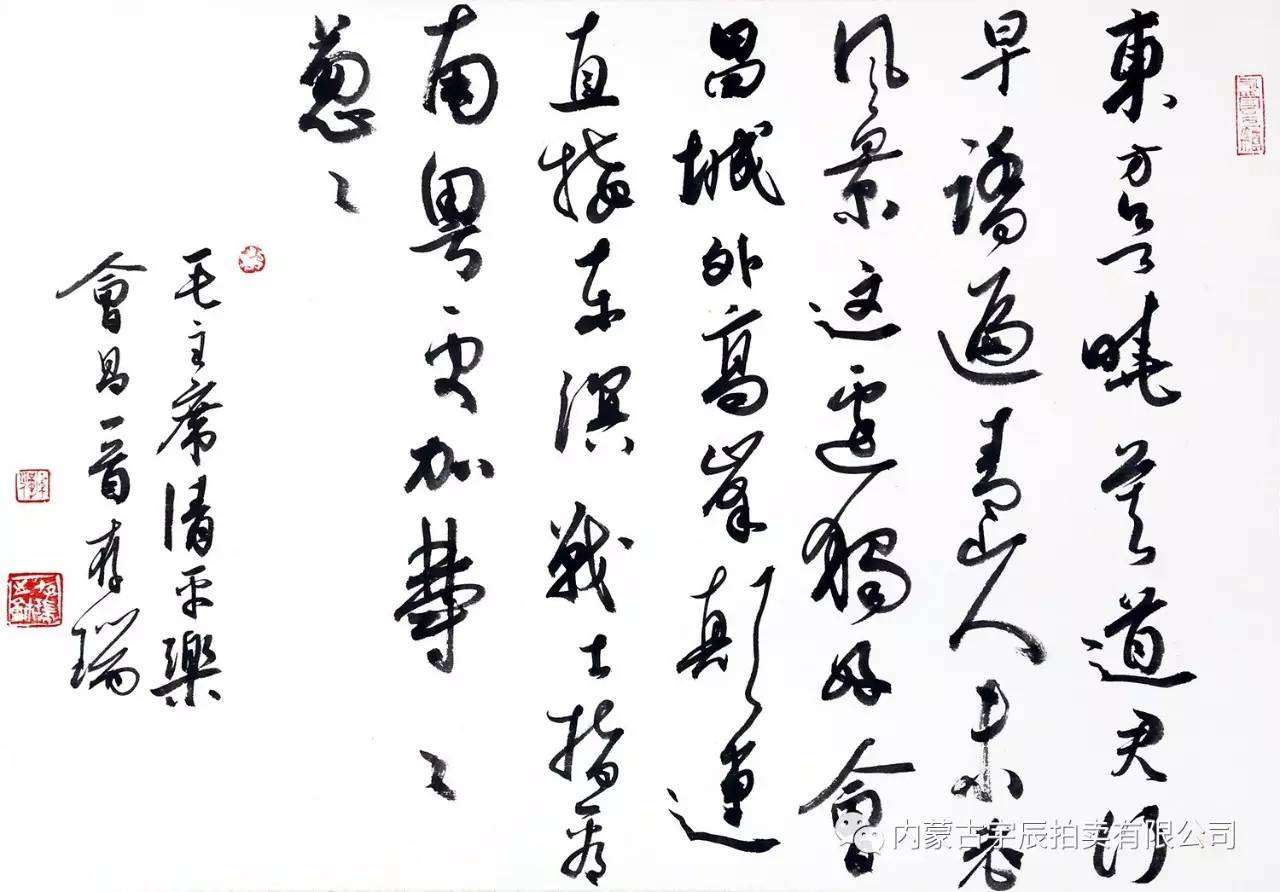 東方欲曉莫道君行
早踏遍青山人未老
風景这邊獨好會
昌城外高峯顛連
直接东溟戰士指看
南粤更加鬱〻
葱〻
毛主席清平樂
會昌一首存瑞
内蒙古宇辰拍卖有限公司